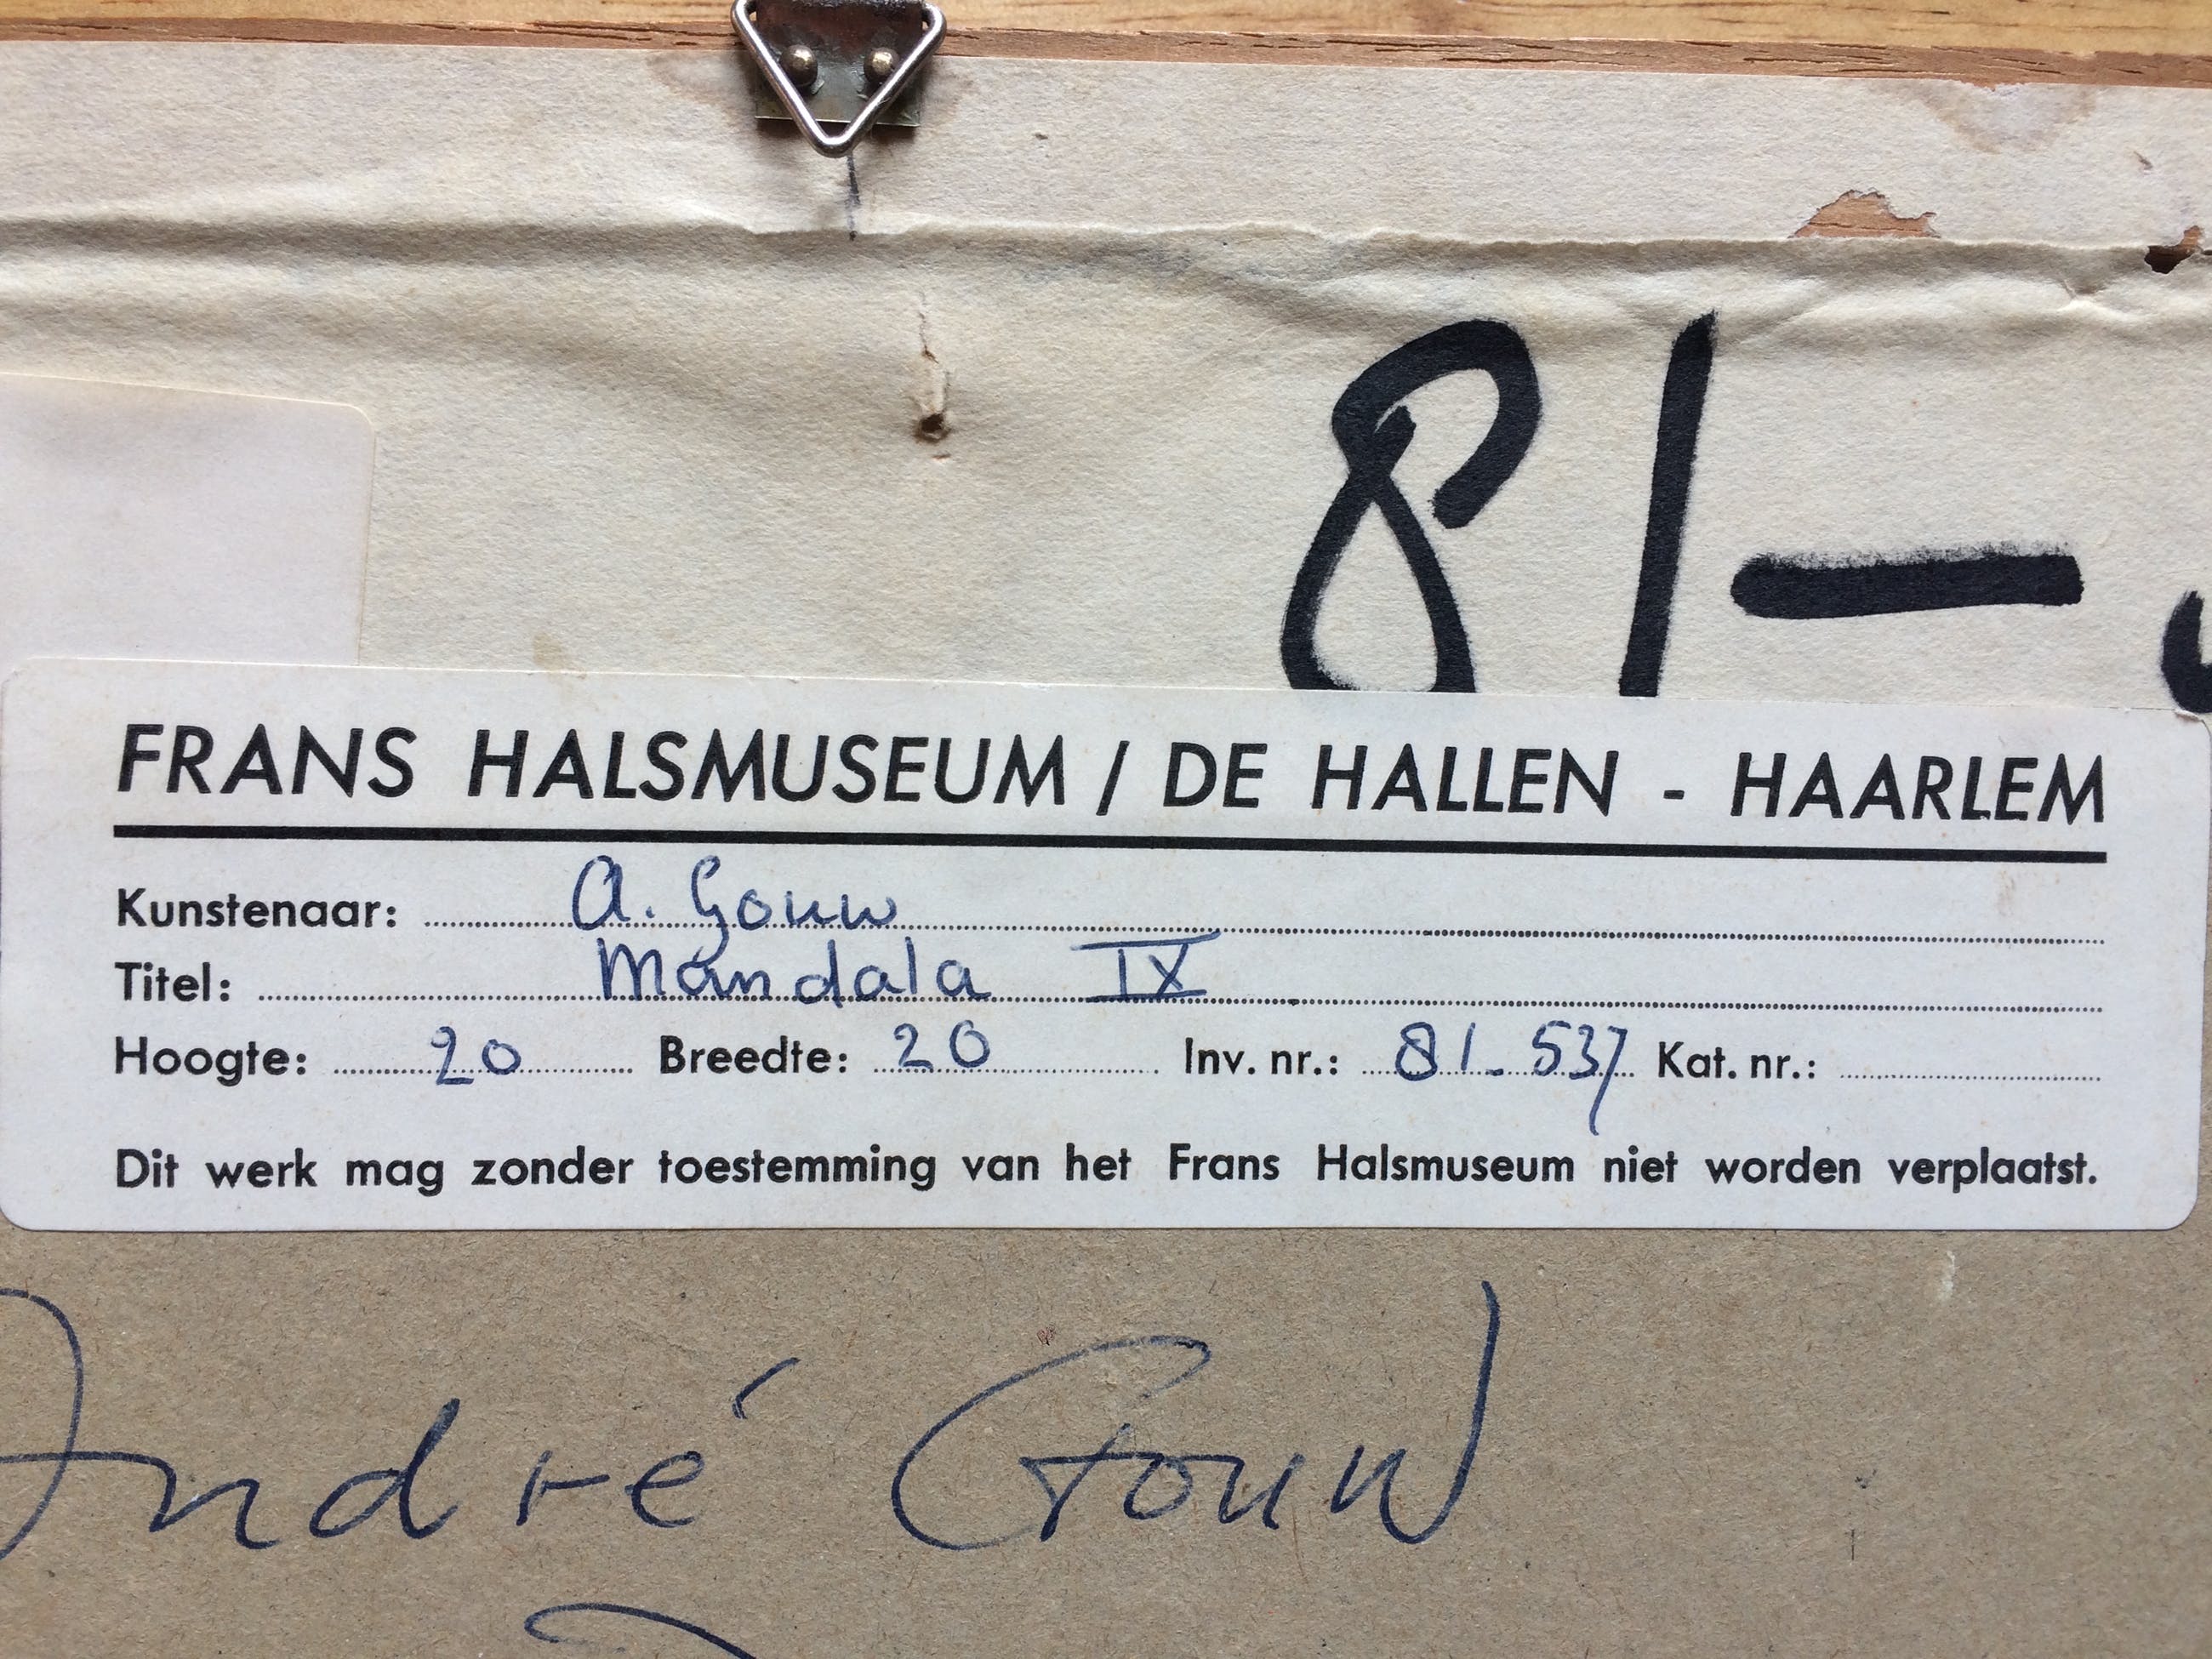 81-
FRANS HALSMUSEUM / DE HALLEN - HAARLEM
Kunstenaar: A. Gouw
Titel: Mandala IX
Hoogte: 20 Breedte: 20 Inv. nr.: 81-537 Kat. nr.:
Dit werk mag zonder toestemming van het Frans Halsmuseum niet worden verplaatst.
André Gouw